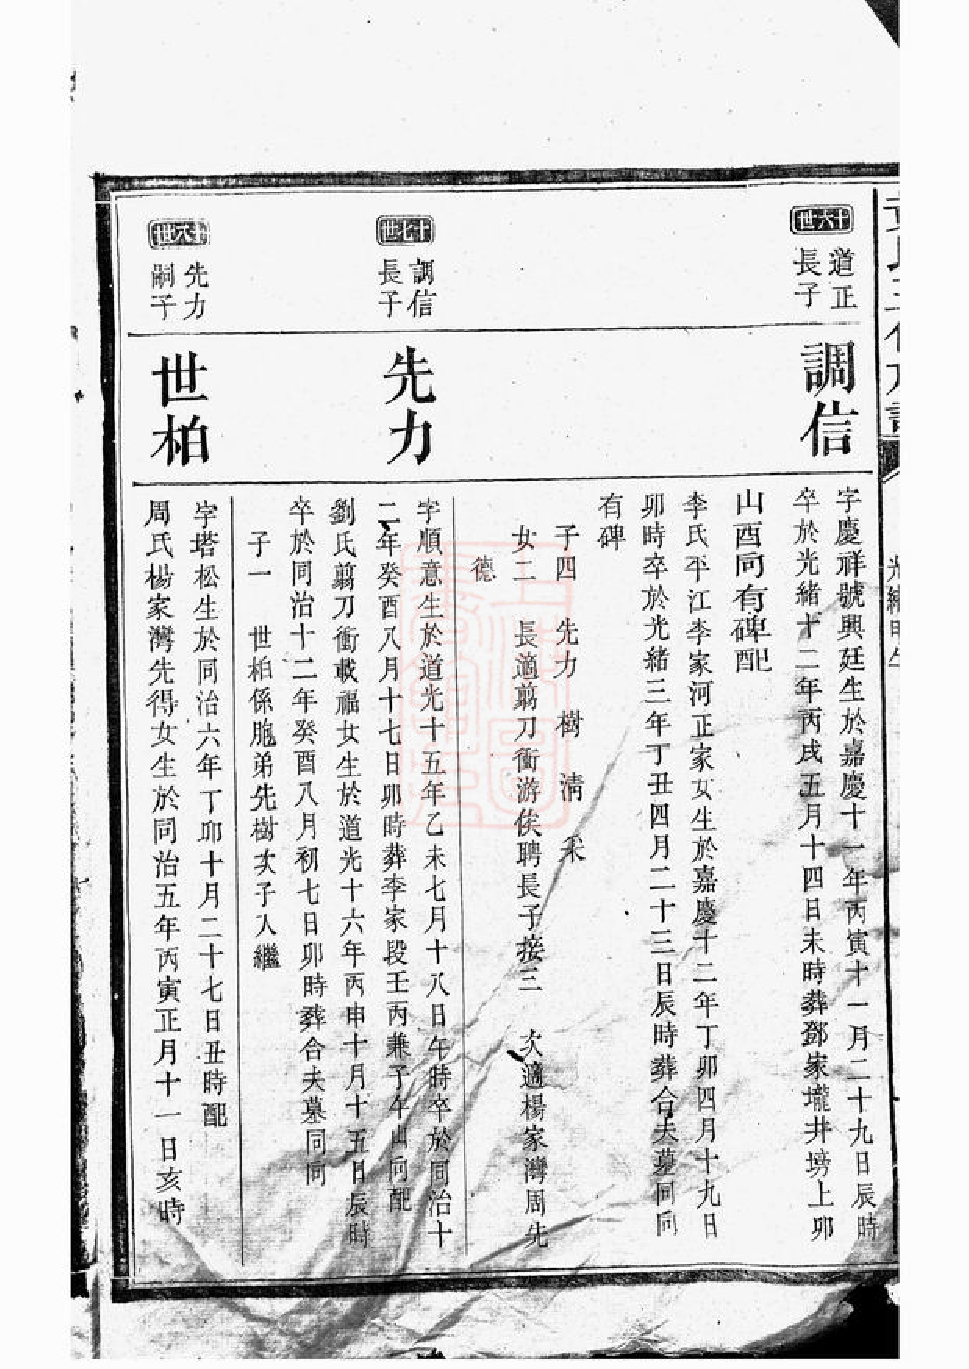 十六世
道正
長子
調信
字慶祥號興廷生於嘉慶十一年丙寅十一月二十九日辰時
卒於光緒十二年丙戌五月十四日未時葬鄧家壠井塝上卯
山酉向有碑配
李氏平江李家河正家女生於嘉慶十二年丁卯四月十九日
卯時卒於光緒三年丁丑四月二十三日辰時葬合夫墓同向
有碑
子四 先力 樹 清 采
女二 長適翦刀衝游俟聘長子接三 次適楊家灣周先
德
十七世
調信
長子
先力
字順意生於道光十五年乙未七月十八日午時卒於同治十
二年癸酉八月十七日卯時葬李家段壬丙兼子午山向配
劉氏翦刀衝載福女生於道光十六年丙申十月十五日辰時
卒於同治十二年癸酉八月初七日卯時葬合夫墓同向
子一 世柏係胞弟先樹次子入繼
十八世
先力
嗣子
世柏
字塔松生於同治六年丁卯十月二十七日丑時配
周氏楊家灣先得女生於同治五年丙寅正月十一日亥時